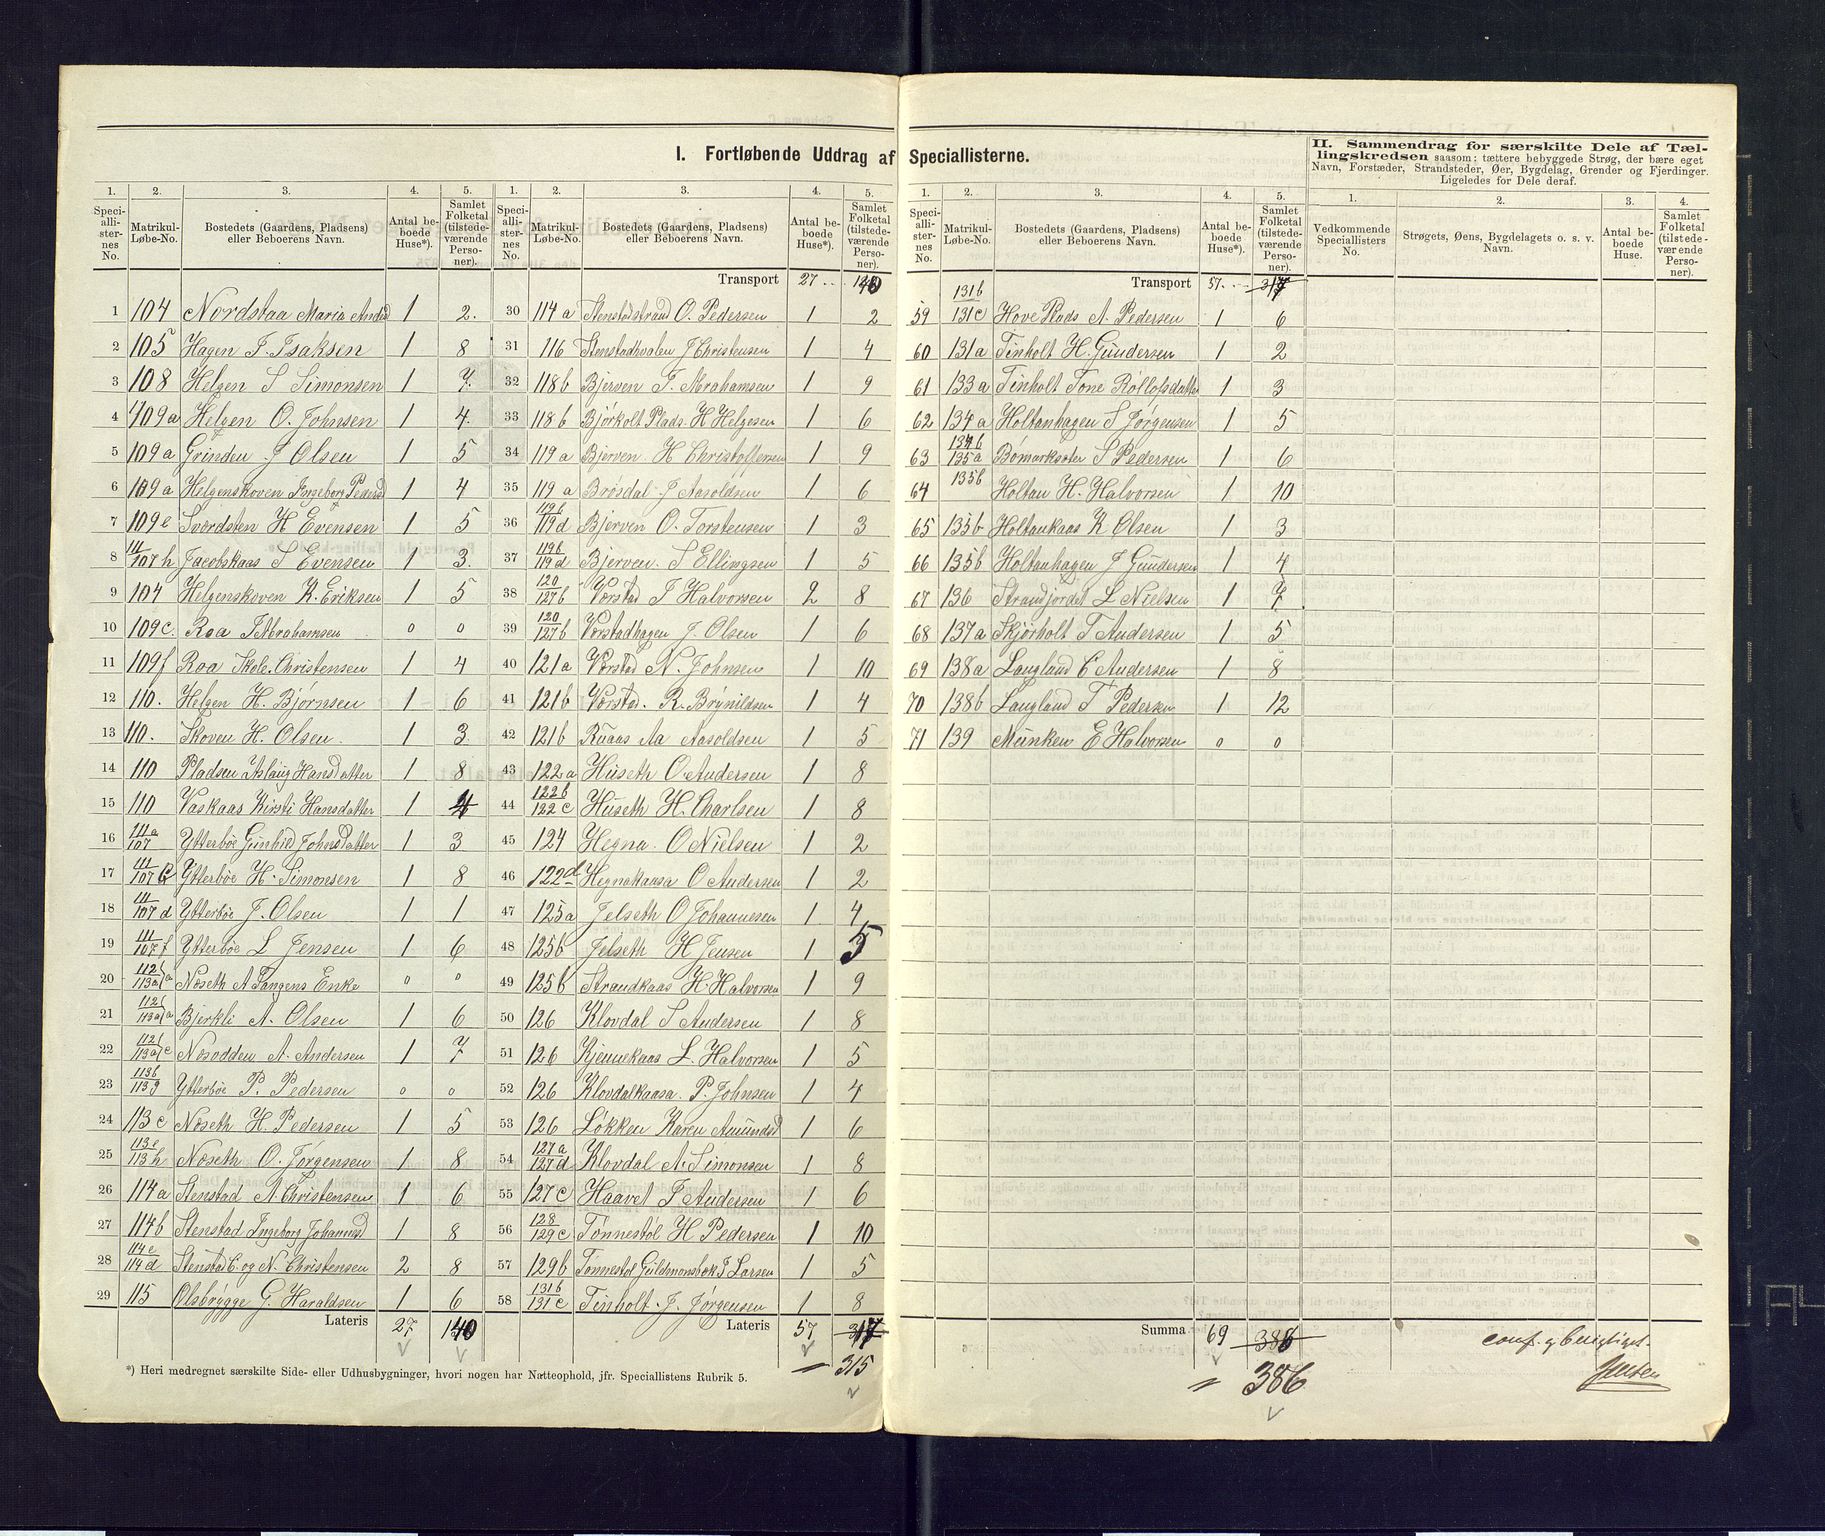 I. Fortløbende Uddrag af Speciallisterne.
1. 2. 3. 4. 5. 1. 2. 3. 4. 5.
Speciallisternes No. Matrikul-Løbe-No. Bostedets (Gaardens, Pladsens) eller Beboerens Navn. Antal beboede Huse*). Samlet Folketal (tilstedeværende Personer). Speciallisternes No. Matrikul-Løbe-No. Bostedets (Gaardens, Pladsens) eller Beboerens Navn. Antal beboede Huse*). Samlet Folketal (tilstedeværende Personer).
1 104 Nordstaa Maria Anders 1 2.
2 105 Hagen T. Isaksen 1 8
3 108 Helgen S Simonsen 1 7.
4 109a Helgen O. Johnsen 1 4.
5 109a Grinden J Olsen 1 5
6 109a Helgenskoven Ingeborg Pedersd 1 4
7 109e Svordsten H Evensen 1 5
8 111/107h Jacobskaas S Evensen 1 3.
9 104 Helgenskoven K. Eriksen 1 5
10 109c. Roa T Abrahamsen 0 0
11 109f Roa Skole. Christensen 1 4
12 110. Helgen H. Bjørnsen 1 6
13 110. Skoven H. Olsen. 1 3
14 110 Pladsen Aslaug Hansdatter 1 8
15 110 Vaskaas Kirsti Hansdatter 1 4
16 111a/107 Ytterbøe Gunhild Johnsdatter 1 3
17 111/107c Ytterbøe H. Simonsen 1 8
18 111/107d Ytterbøe J. Olsen 1 1
19 111/107f Ytterbøe L Jensen 1 6
20 112/113a a Næseth A Tangens Enke 0 0
21 112/113a a Bjerkli A. Olsen 1 6
22 112/113a c Nesodden A. Andersen 1 7
23 113b/113g Ytterbøe P. Pedersen 0 0
24 113c Næseth H. Pedersen 1 5
25 113e/113h Næseth O. Jørgensen 1 8
26 114a Stenstad A. Christensen 1 6
27 114b Stenstad Ingeborg Johannesd 1 8
28 114c/114d Stenstad C. og N. Christensen 2 8
29 115 Olsbrygge G. Haraldsen 1 6
Lateris 27 140
Transport 27 140
30 114a Stenstadstrand O. Pedersen 1 2
31 116 Stenstadhvalen J Christensen 1 4
32 118b Bjerven T. Abrahamsen 1 9
33 118b Bjørkolt Plads. H Helgesen 1 6
34 119a Bjerven. H Christoffersen 1 9
35 119a Brøsdal. J Aasoldsen 1 6
36 119b/119d Bjerven O. Torstensen 1 3
37 119b/119d Bjerven. S Ellingsen 1 5
38 120/127b Vorstad T Halvorsen 2 8
39 120/127b Vorstadhagen J. Olsen 1 6
40 121a Vorstad N. Johnsen 1 10
41 121b Vorstad. R. Brynildsen 1 4
42 121b Ruaas Aa Aasoldsen 1 5
43 122a Huseth O Andersen 1 8
44 122b/122c Huseth H. Charlsen 1 8
45 124 Hegna. O Nielsen 1 2
46 122d Hegnakaasa O Andersen 1 2
47 125a Jelseth O Johannesen 1 4
48 125b Jelseth H Jensen 1 5
49 125b Strandkaas H. Halvorsen 1 9
50 126 Klovdal S Andersen 1 8
51 126 Kjennekaas L. Halvorsen 1 5
52 126 Klovdalkaasa. P. Johnsen 1 4
53 126 Løkken Karen Amundsd 1 6
54 127a/127d Klovdal A. Simonsen 1 8
55 127c Haavet T Andersen 1 6
56 128/129c Tønnestøl H Pedersen 1 10
57 129b Tønnestøl Guldmonsbæk T Larsen 1 5
58 131b/131c Tinholt. J. Jørgensen 1 8
Lateris 57 317
" 315
*) Heri medregnet særskilte Side- eller Udhusbygninger, hvori nogen har Natteophold, jfr. Speciallistens Rubrik 5.
1. 2. 3. 4. 5.
Speciallisternes No. Matrikul-Løbe-No. Bostedets (Gaardens, Pladsens) eller Beboerens Navn. Antal beboede Huse*). Samlet Folketal (tilstedeværende Personer).
Transport 57 317
59 131b/131c Hove Plads A. Pedersen 1 6
60 131a Tinholt H. Gundersen 1 2
61 133a Tinholt Tone Rollofsdatter 1 3
62 134a Holtanhagen S Jørgensen 1 5
63 134b/135a Bomarksæter S Pedersen 1 6
64 135b Holtan H. Halvorsen 1 10
65 135b Holtankaas K Olsen 1 3
66 135b Holtanhagen J Gundersen 1 4
67 136 Strandjordet L Nielsen 1 7
68 137a Skjørholt T Andersen 1 5
69 138a Langland C Andersen 1 8
70 138b Langland T Pedersen 1 12
71 139 Munken E Halvorsen 0 0
Summa 69 386
" 386
II. Sammendrag for særskilte Dele af Tællingskredsen saasom: tættere bebyggede Strøg, der bære eget Navn, Forstæder, Strandsteder, Øer, Bygdelag, Grender og Fjerdinger. Ligeledes for Dele deraf.
1. 2. 3. 4.
Vedkommende Speciallisters No. Strøgets, Øens, Bygdelagets o. s. v. Navn. Antal beboede Huse. Samlet Folketal (tilstedeværende Personer).
conf. og berigtiget.
Jensen